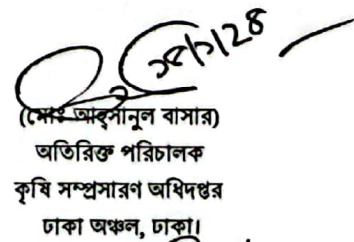 (মোঃ আহ্সানুল বাসার)
অতিরিক্ত পরিচালক
কৃষি সম্প্রসারণ অধিদপ্তর
ঢাকা অঞ্চল, ঢাকা।